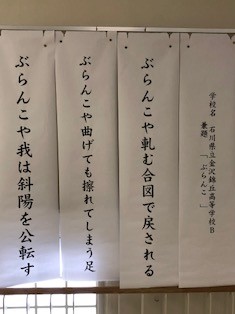 学校名　石川県立金沢錦丘高等学校B
兼題　「ぶらんこ」
ぶらんこや軋む合図で戻される
ぶらんこや曲げても擦れてしまう足
ぶらんこや我は斜陽を公転す